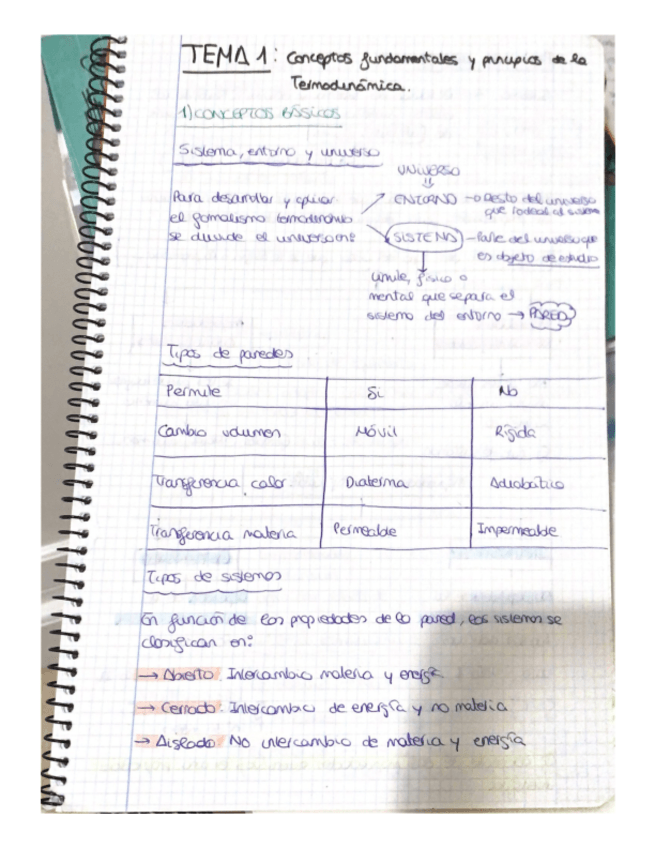 TEMA 1: Conceptos fundamentales y principios de la
Termodinámica.
1) CONCEPTOS BÁSICOS
Sistema, entorno y universo
UNIVERSO
Para desarrollar y aplicar
el formalismo termodinámico
se divide el universo en:
ENTORNO → Resto del universo
que rodea al sistema
SISTEMA → Parte del universo que
es objeto de estudio
Límite, físico o
mental que separa el
sistema del entorno → PARED
Tipos de paredes
Permite Si No
Cambio volumen Móvil Rígida
Transferencia calor Diaterma Adiabático
Transferencia materia Permeable Impermeable
Tipos de sistemas
En función de las propiedades de la pared, los sistemas se
clasifican en:
→ Abierto: Intercambio materia y energía
→ Cerrado: Intercambio de energía y no materia
→ Aislado: No intercambio de materia y energía